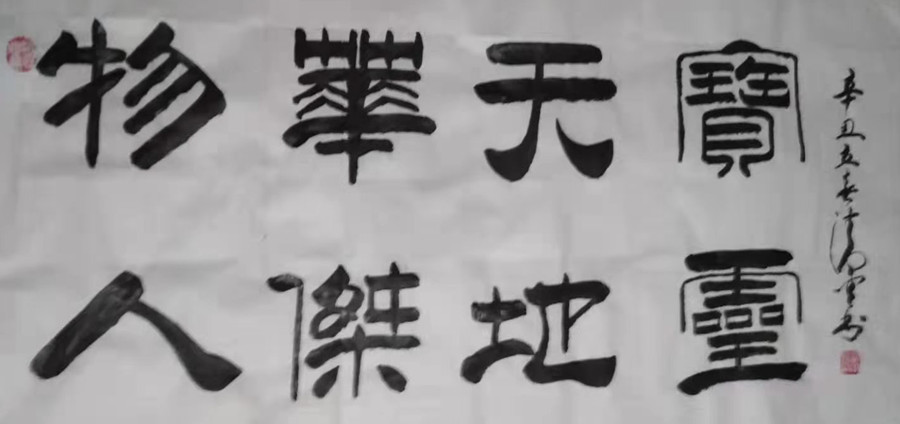 物華天寶
人傑地靈
辛丑立春